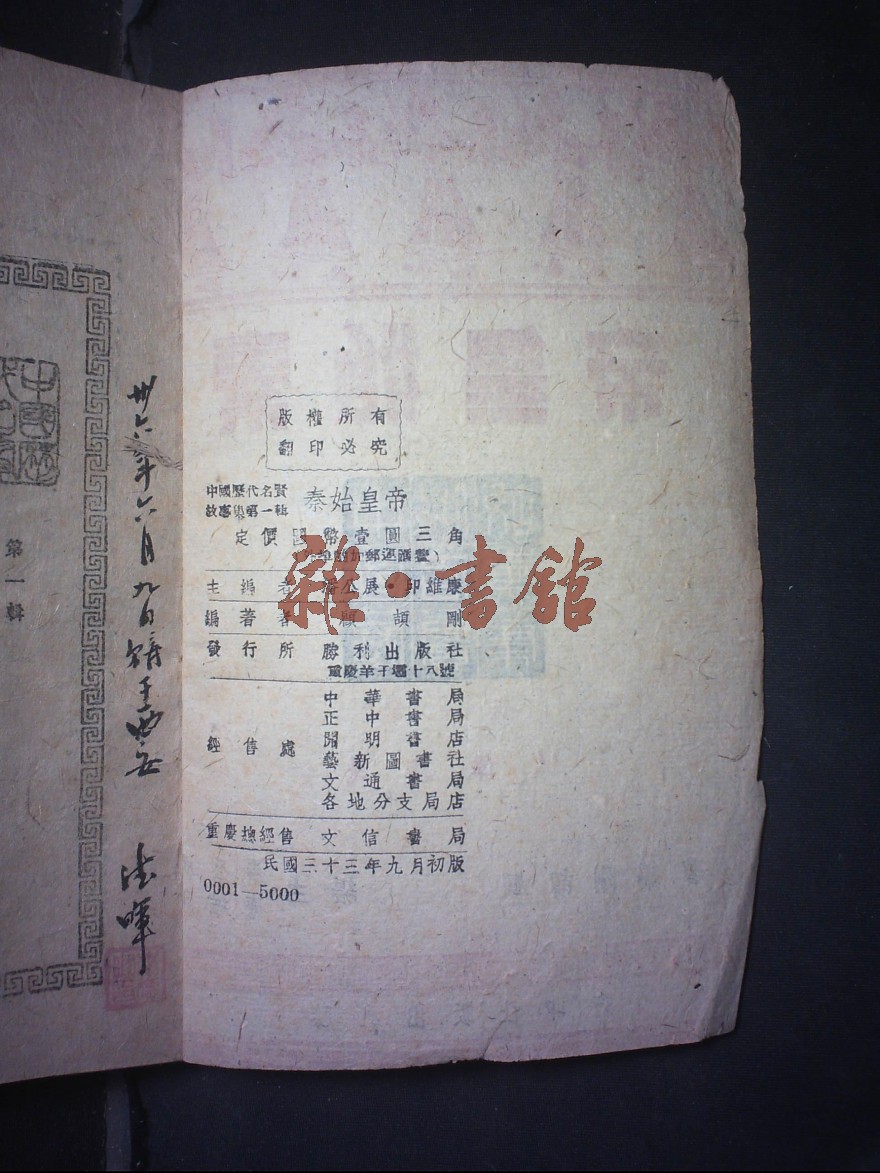 版權所有
翻印必究
中國歷代名賢
故事集第一輯
秦始皇帝
定價國幣壹圓三角
主編者 潘公展·印維廉
編著者 顧頡剛
發行所 勝利出版社
重慶羊子壩十八號
經售處
中華書局
正中書局
開明書店
藝新圖書社
文通書局
各地分支局店
重慶總經售 文信書局
民國三十三年九月初版
0001—5000
雜·書館
第一輯
卅六年六月九日購于西安